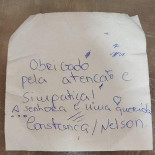 Obrigado
pela atenção e
Simpatica!
A senhora é uma querida
Constança / Nelson